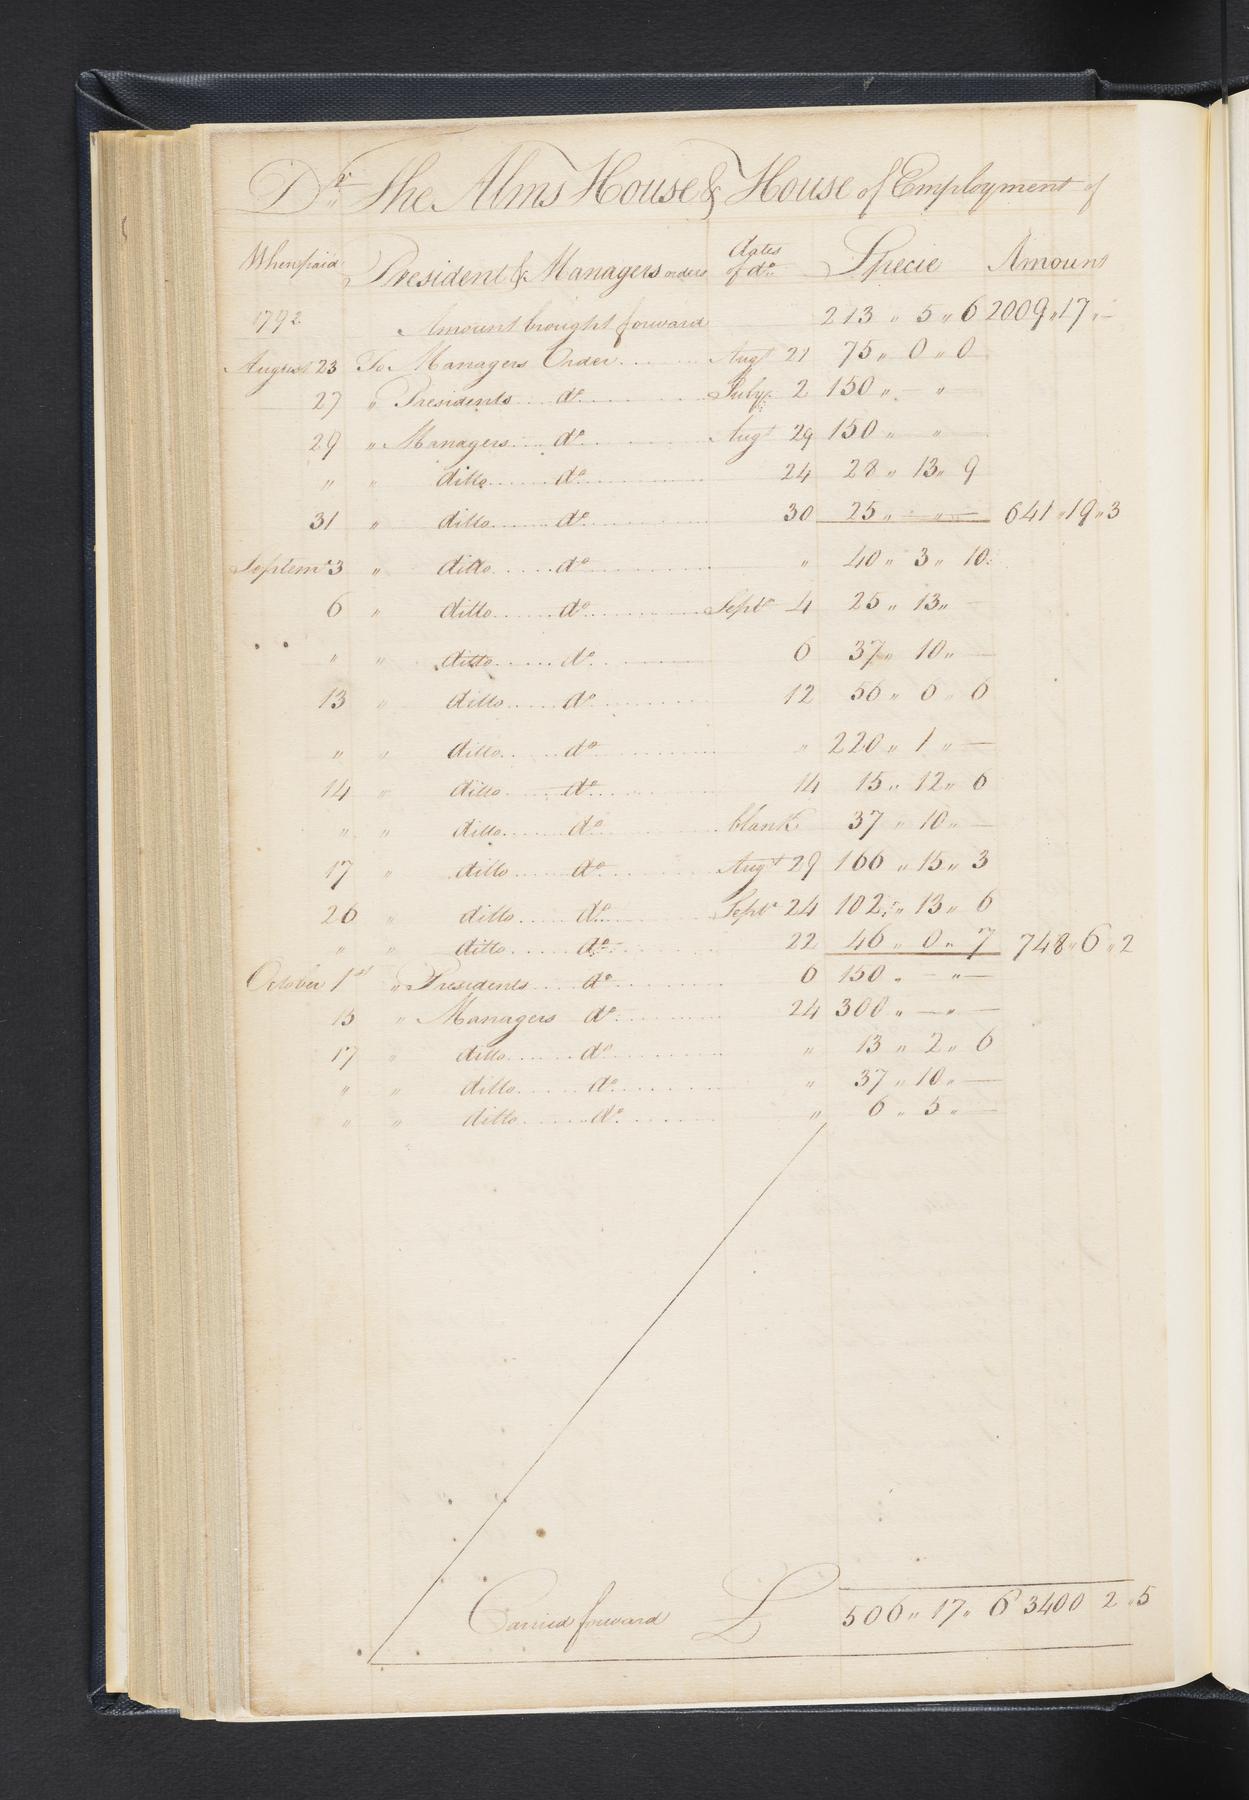 Dr The Alms House & House of Employment of
When paid President & Managers orders dates of do Specie Amount
1792 Amount brought forward 213 " 5 " 6 2009 " 17 " -
August 23 To Managers Order ...... Augt 21 75 " 0 " 0
27 " Presidents ... do ...... July 2 150 " - " -
29 " Managers ... do ...... Augt 29 150 " - " -
" " ditto ...... do ...... 24 28 " 13 " 9
31 " ditto ...... do ...... 30 25 " - " - 641 " 19 " 3
Septemr 3 " ditto ...... do ...... " 40 " 3 " 10
6 " ditto ...... do ...... Septr 4 25 " 13 " -
" " ditto ...... do ...... 6 37 " 10 " -
13 " ditto ...... do ...... 12 56 " 6 " 6
" " ditto ...... do ...... " 220 " 1 " -
14 " ditto ...... do ...... 14 15 " 12 " 6
" " ditto ...... do ...... blank 37 " 10 " -
17 " ditto ...... do ...... Augt 29 166 " 15 " 3
26 " ditto ...... do ...... Septr 24 102 " 13 " 6
" " ditto ...... do ...... 22 46 " 0 " 7 748 " 6 " 2
October 1st " Presidents ... do ...... 6 150 " - " -
15 " Managers do ...... 24 300 " - " -
17 " ditto ...... do ...... " 13 " 2 " 6
" " ditto ...... do ...... " 37 " 10 " -
" " ditto ...... do ...... " 6 " 5 " -
Carried forward £ 506 " 17 " 6 3400 2 " 5